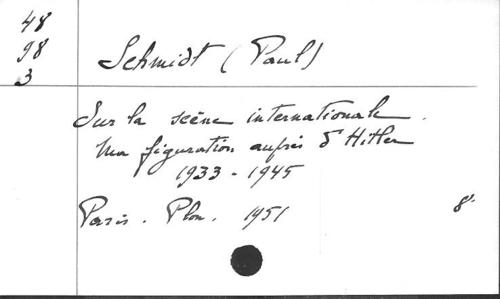 48
98
3
Schmidt (Paul)
Sur la scène internationale.
Ma figuration auprès d'Hitler
1933 - 1945
Paris. Plon. 1951
8°